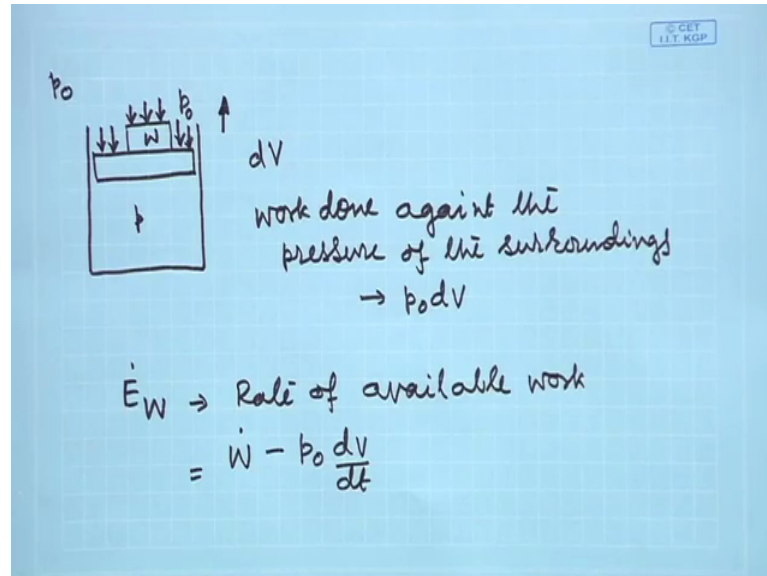 © CET
I.I.T. KGP
p₀
p₀
W
dV
p
work done againt the
pressure of the surroundings
→ p₀dV
Ė_W → Rate of available work
= Ẇ - p₀ dv/dt